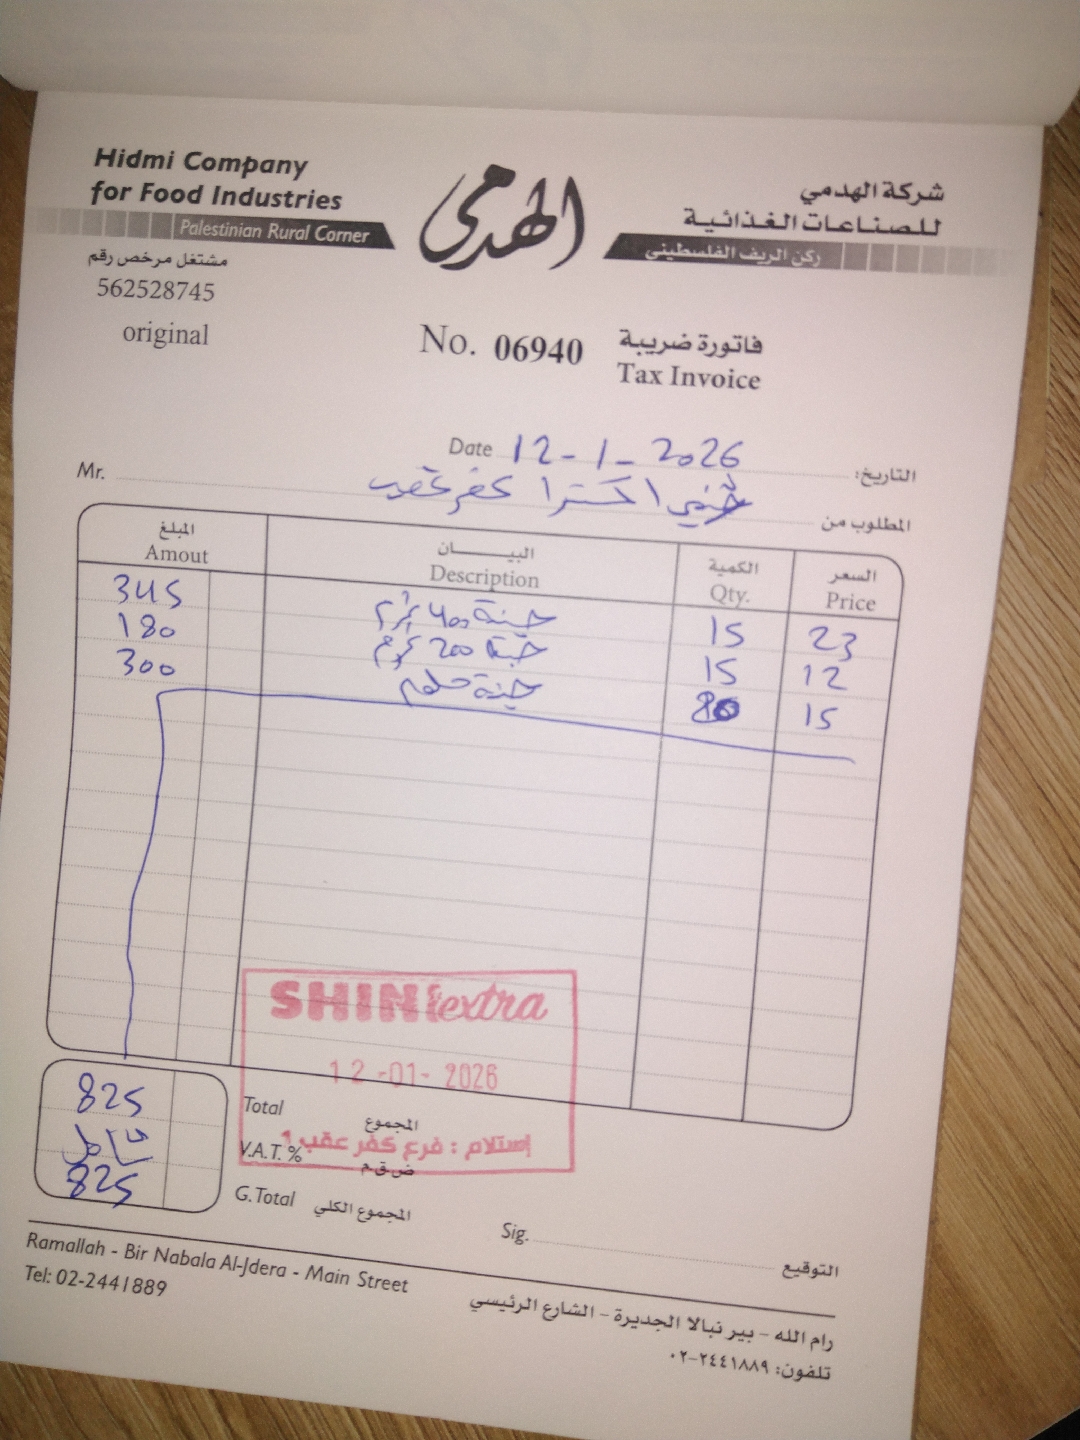 Hidmi Company
for Food Industries
Palestinian Rural Corner
مشتغل مرخص رقم
562528745
original
الهدمي
شركة الهدمي
للصناعات الغذائية
ركن الريف الفلسطيني
No. 06940
فاتورة ضريبة
Tax Invoice
Date 12-1-2026 التاريخ:
Mr. شيني اكسترا كفر عقب المطلوب من
المبلغ البيـــــان الكمية السعر
Amout Description Qty. Price
345 جبنة 400 غرام 15 23
180 جبنة 200 غرام 15 12
300 جبنة 15
SHINI extra
12-01-2026
إستلام : فرع كفر عقب 1
825 Total المجموع
شامل V.A.T. % ض.ق.م
825 G.Total المجموع الكلي
Sig. التوقيع
Ramallah - Bir Nabala Al-Jdera - Main Street
Tel: 02-2441889
رام الله - بير نبالا الجديرة - الشارع الرئيسي
تلفون: ٠٢-٢٤٤١٨٨٩